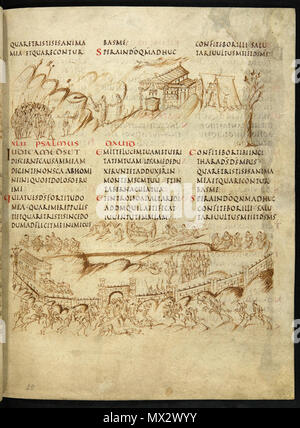 QUARETRISTISESANIMA
MEAETQUARECONTUR
BASME
SPERAINDOQMADHUC
CONFITEBORILLISALU
TAREUULTUSMEIETDSMS
XLII PSALMUS DAUID
IUDICAMEDSET
DISCERNECAUSAMMEAM
DEGENTENONSCAABHOMI
NEINIQUOETDOLOSOERU
EME
QUIATUESDSFORTITUDO
MEAQUAREMEREPPULIS
TIETQUARETRISTISINCEDO
DUMADFLIGITMEINIMICUS
EMITTELUCEMTUAMETUERI
TATEMTUAMIPSAMEDEDU
XERUNTETADDUXERUNTIN
MONTEMSCMTUUMETIN
TABERNACULATUA
ETINTROIBOADALTAREDI
ADDMQUILAETIFICAT
IUUENTUTEMMEAM
CONFITEBORTIBIINCI
THARADSDSMEUS
QUARETRISTISESANIMA
MEAETQUARECONTUR
BASME
SPERAINDOQMADHUC
CONFITEBORILLISALU
TAREUULTUSMEIETDSMS
alamy
Image ID: MX2WYY
www.alamy.com